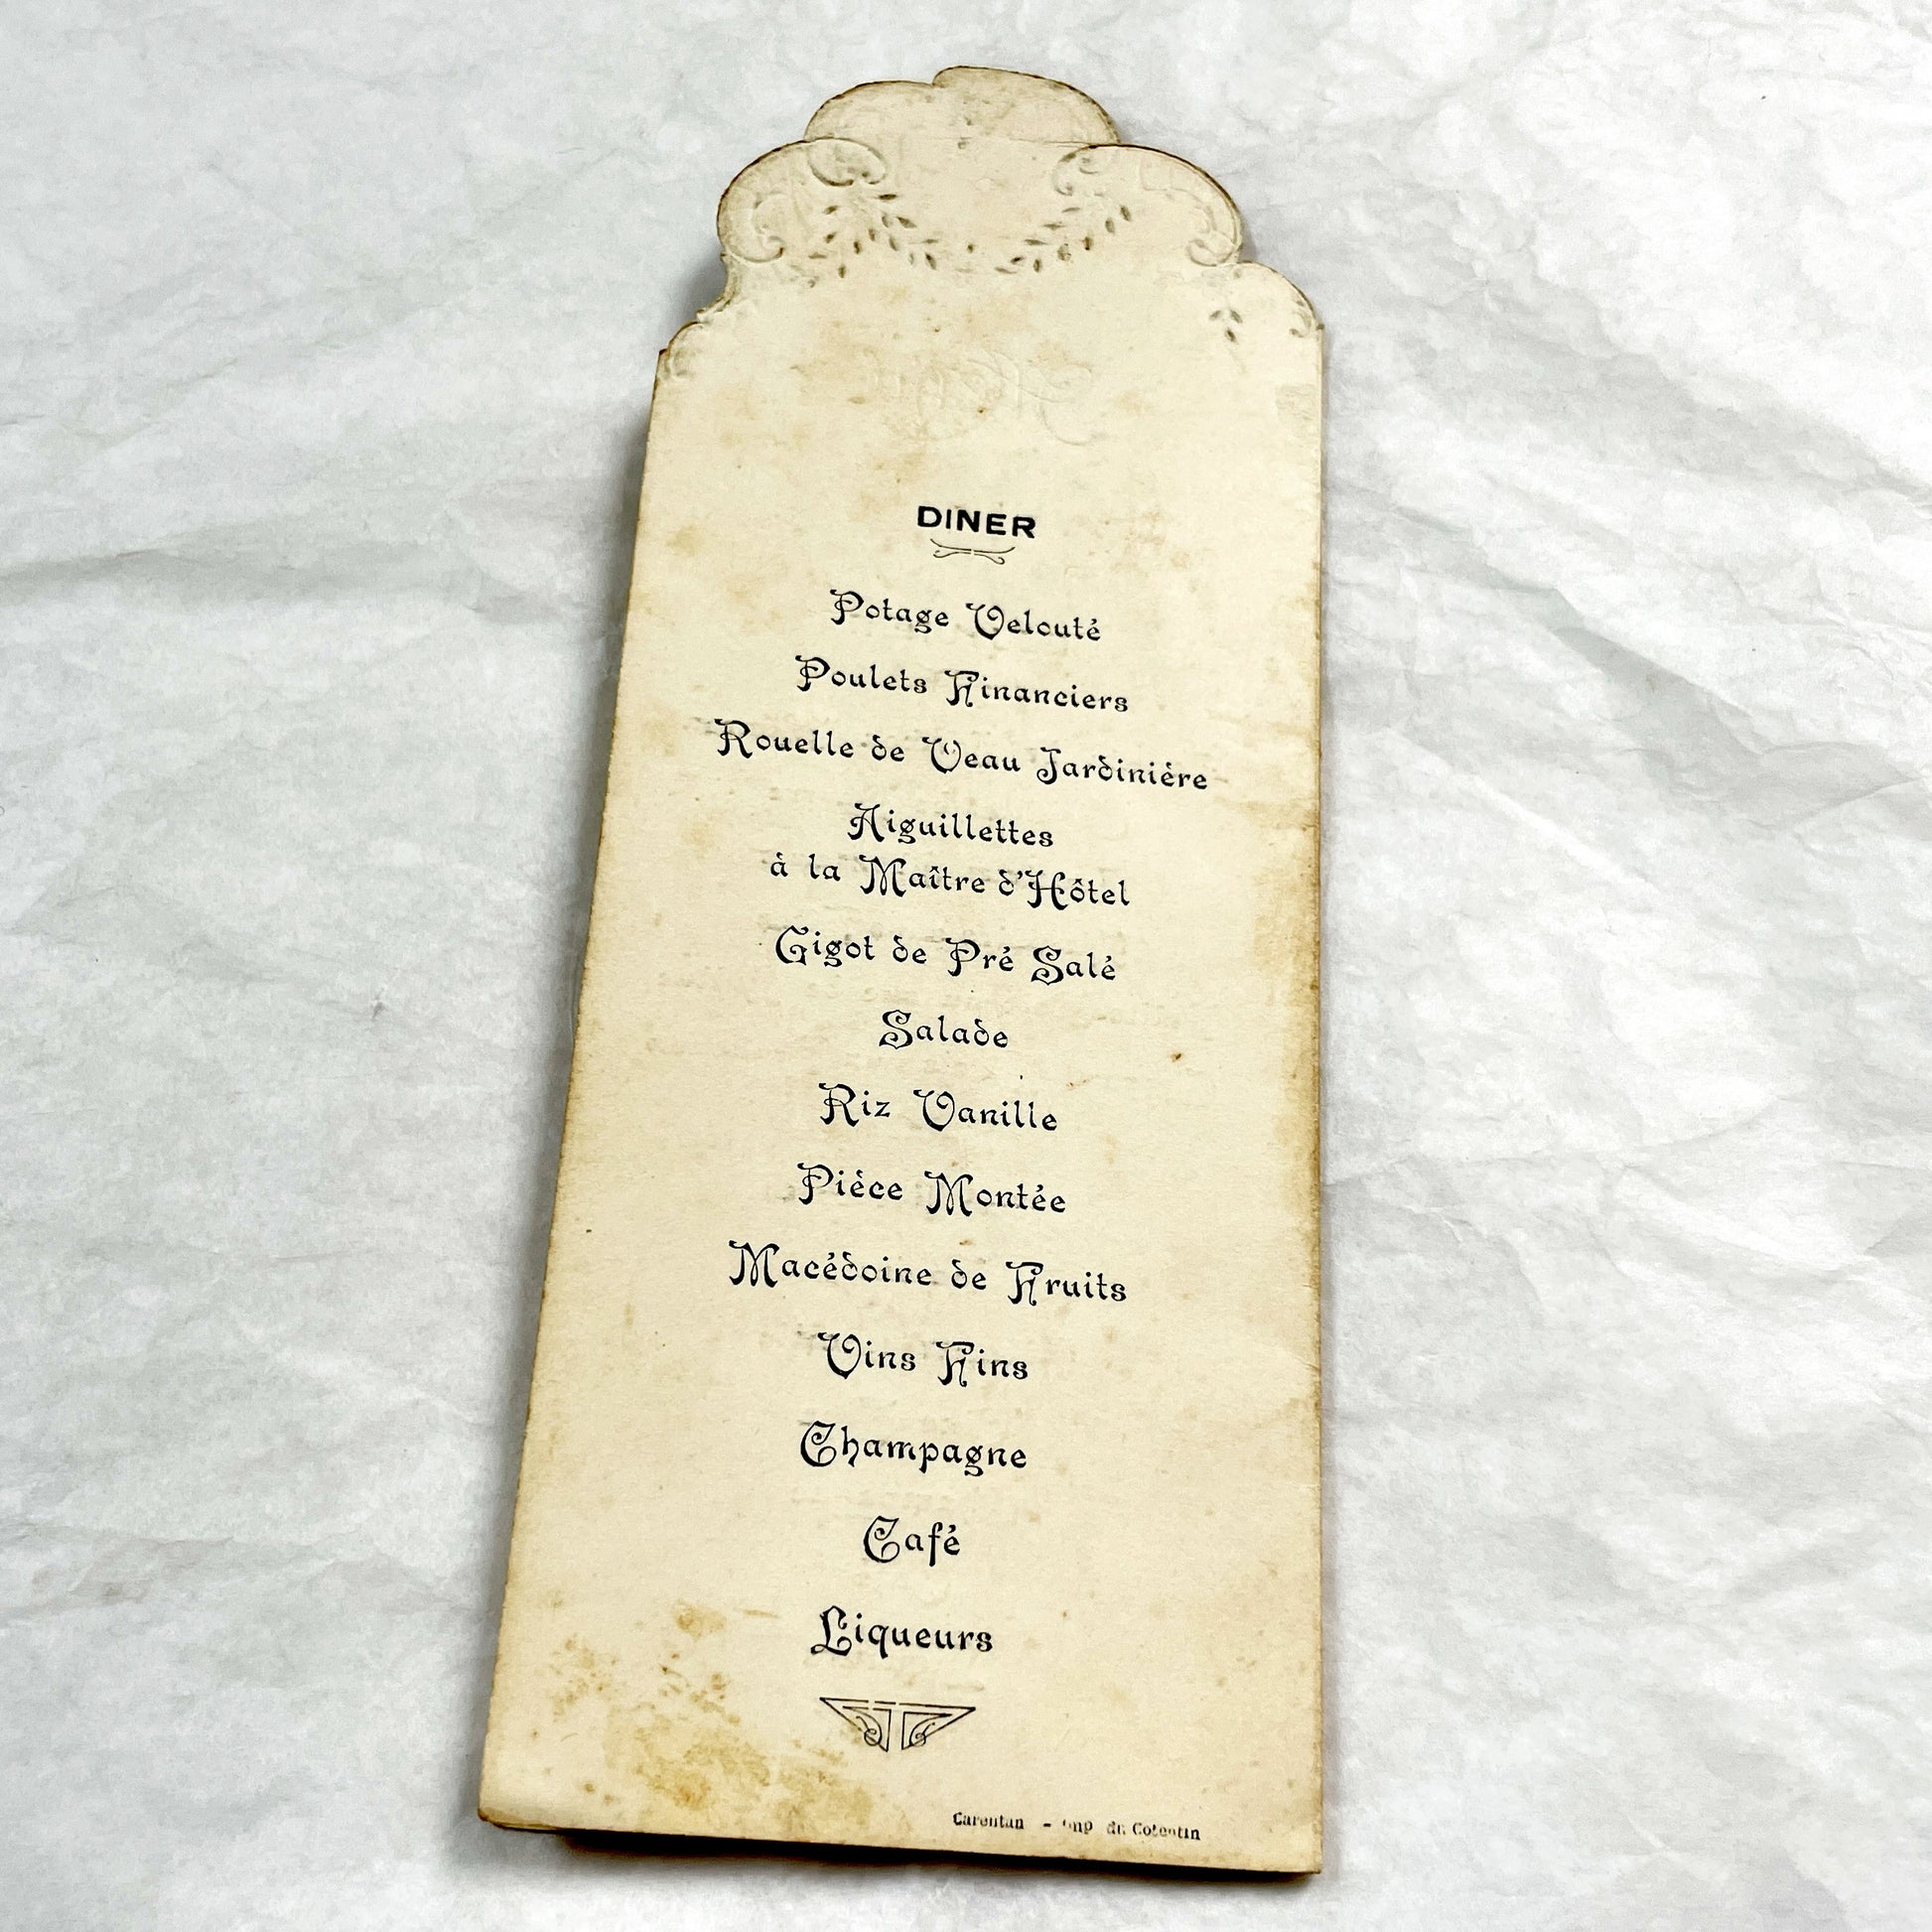 DINER
Potage Velouté
Poulets Financiers
Rouelle de Veau Jardinière
Aiguillettes
à la Maître d'Hôtel
Gigot de Pré Salé
Salade
Riz Vanille
Pièce Montée
Macédoine de Fruits
Vins Fins
Champagne
Café
Liqueurs
Carentan - Imp du Cotentin